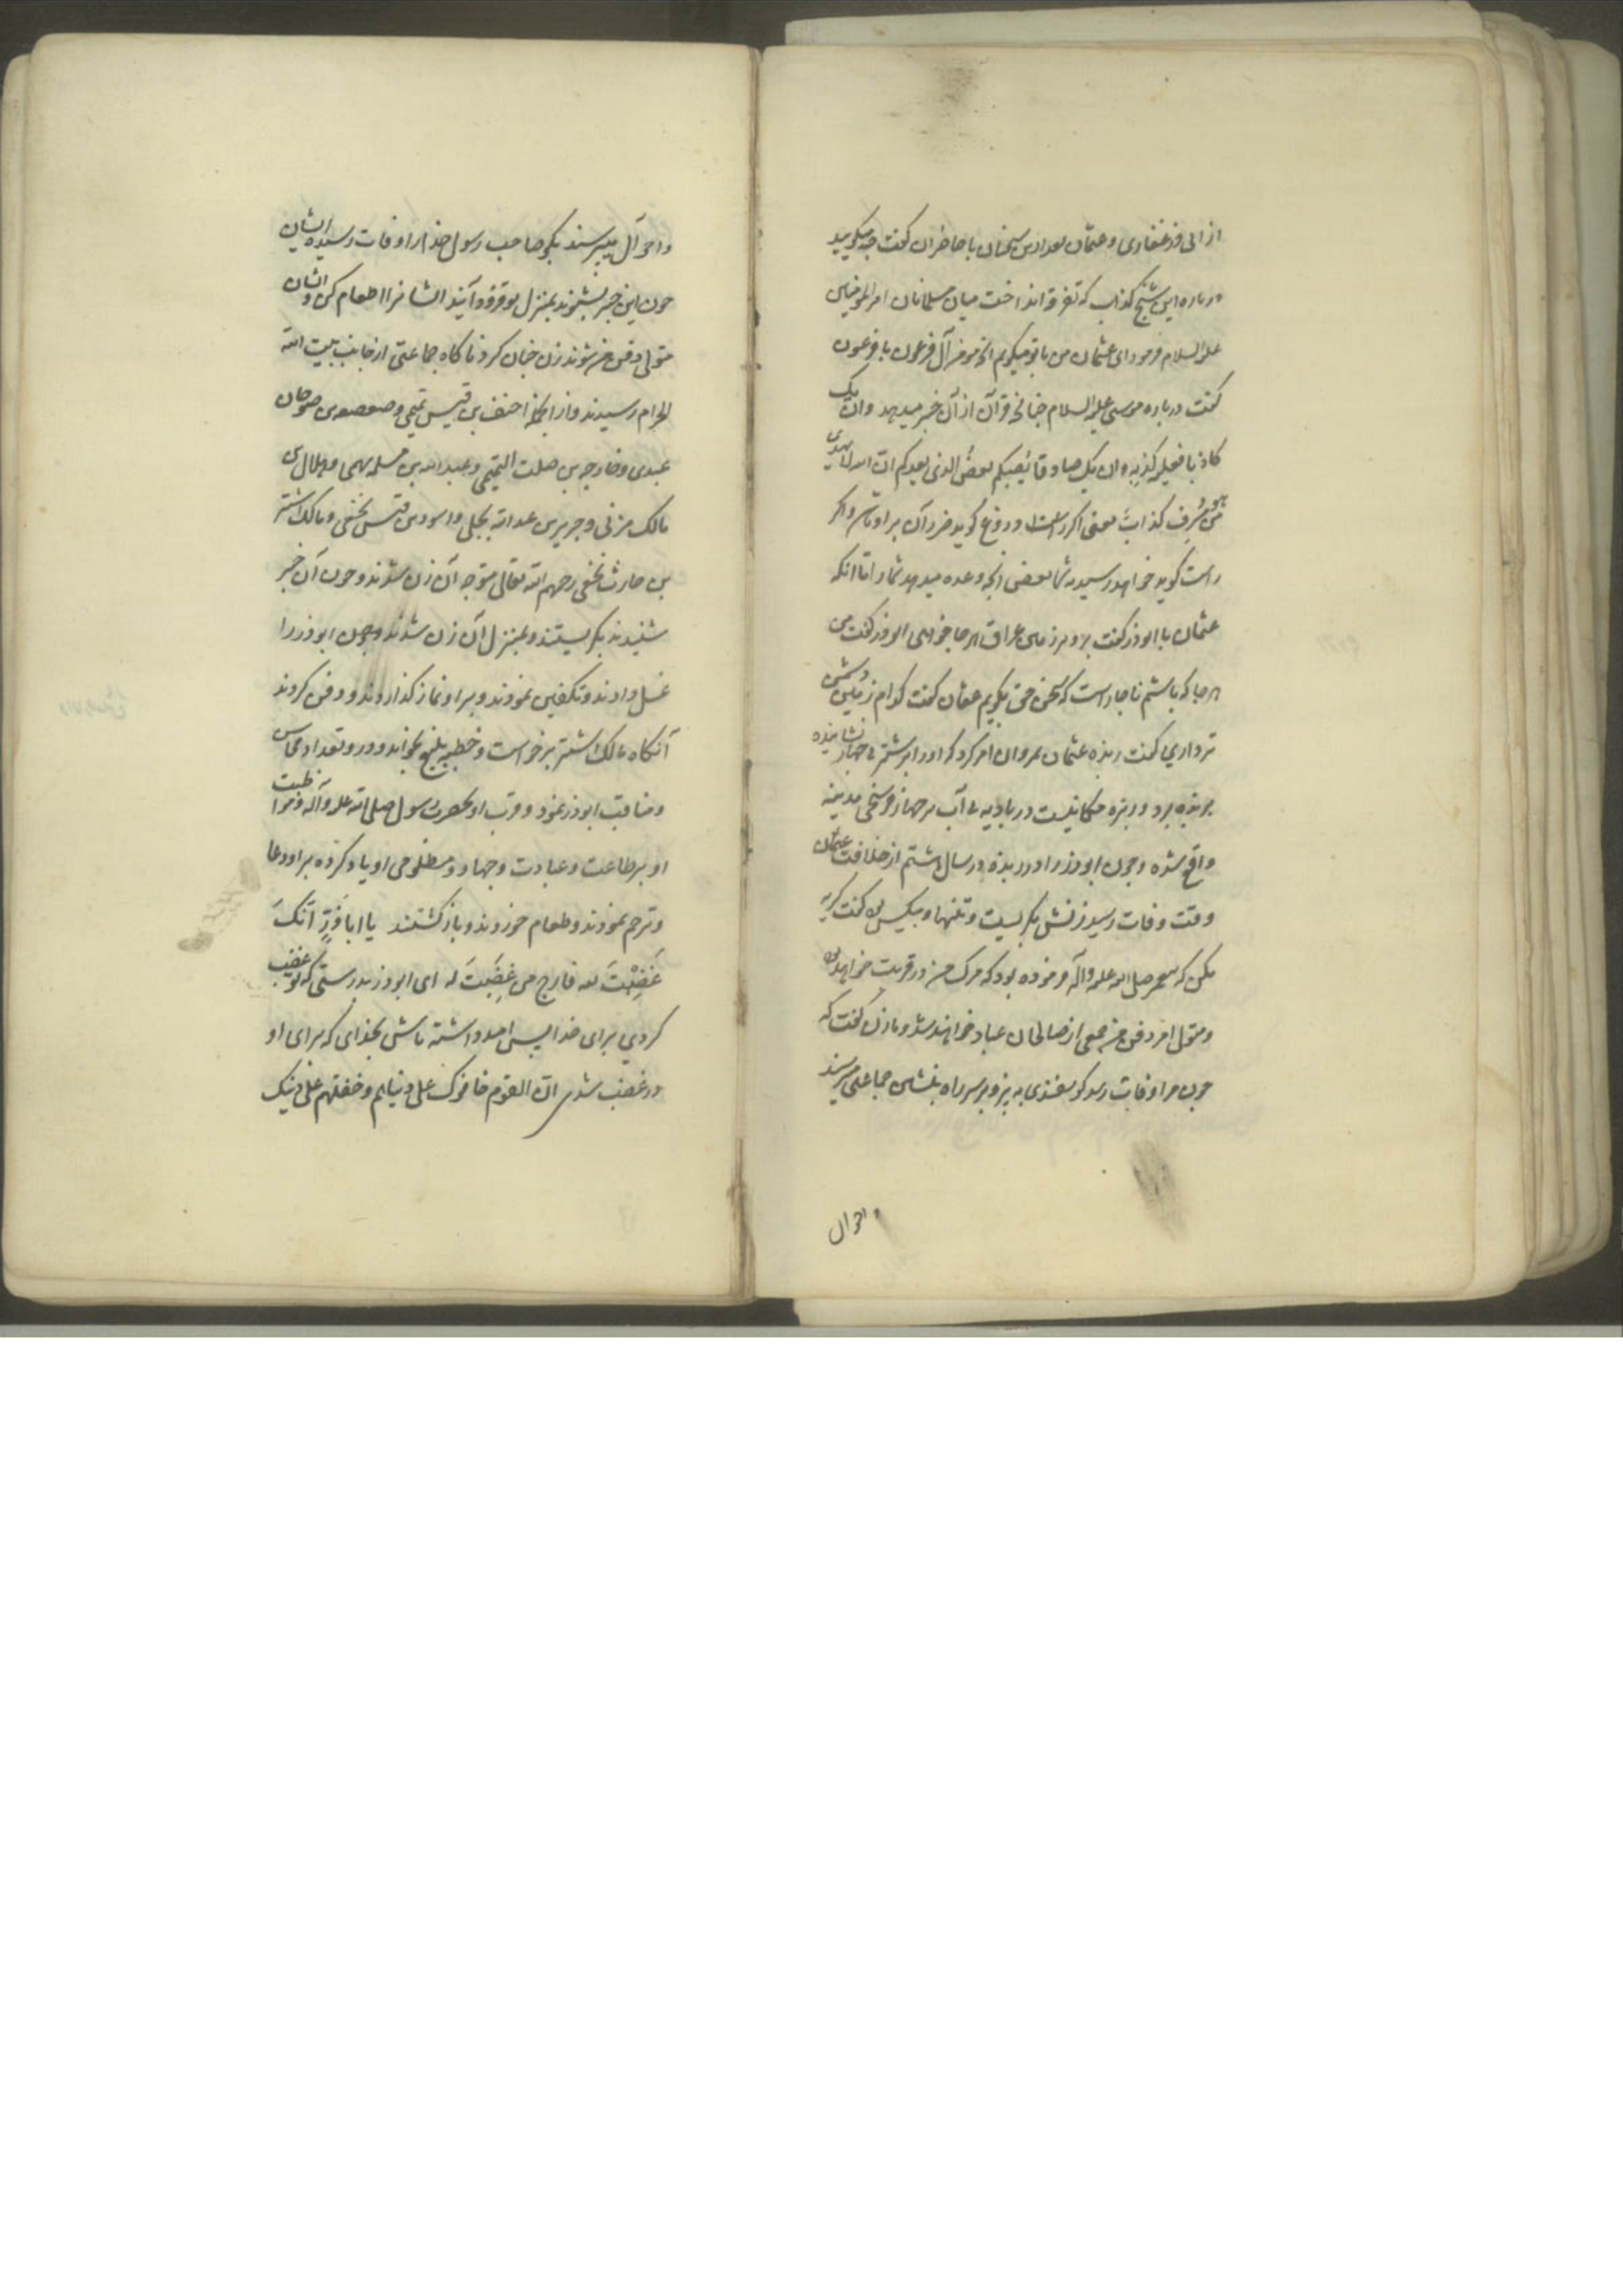 از ابی ذر غفاری و عثمان بعد از این سخنان با حاضران گفت چه میگویید
درباره این شیخ کذاب که تفرقه انداخت میان مسلمانان امیرالمؤمنین
علیه السلام فرمود ای عثمان من با تو میگویم آنچه مومن آل فرعون با فرعون
گفت درباره موسی علیه السلام چنانچه قرآن از آن خبر میدهد وان یک
کاذبا فعلیه کذبه وان یک صادقا یصبکم بعض الذی یعدکم ان الله لا یهدی
من هو مسرف کذاب یعنی اگر دروغ گوید ضرر آن بر او باشد واگر
راست گوید خواهد رسید به شما بعضی آنچه وعده میدهد شما را تا آنکه
عثمان با ابوذر گفت برو بر زمین عراق هر جا خواهی ابوذر گفت من
هر جا که باشم ناچار است که سخن حق بگویم عثمان گفت کدام زمین دشمن
تر داری گفت ربذه عثمان مروان امر کرد که او را بر شتر بی جهاز نشانیده
بربذه برد و ربذه مکانیست در بادیه بی آب بر چهار فرسخی مدینه
واقع شده و چون ابوذر را در ربذه در سال هشتم از خلافت عثمان
وقت وفات رسید زنش بگریست و تنها و بیکس گفت گریه
مکن که پیغمبر صلی الله علیه وآله فرموده بود که مرگ من در غربت خواهد بود
و متولی امر دفن من جمعی از صالحان عباد خواهند شد و با زن گفت که
چون مرا وفات رسد گوسفندی به پز و بر سر راه بنشین جماعتی میرسند
واحوال
واحوال میپرسند بگو صاحب رسول خدا را وفات رسیده ایشان
چون این خبر بشنوند بمنزل تو فرود آیند ایشان را طعام کن و ایشان
متولی دفن من شوند زن چنان کرد ناگاه جماعتی از جانب بیت الله
الحرام رسیدند و از آنجمله احنف بن قیس تمیمی و صعصعه بن صوحان
عبدی و خارجه بن صلت التمیمی و عبدالله بن مسلمه و هلال بن
مالک مزنی و جریر بن عبدالله بجلی و اسود بن قیس نخعی و مالک اشتر
بن حارث نخعی رحمهم الله تعالی متوجه آن زن شدند و چون آن خبر
شنیدند بگریستند و بمنزل آن زن شدند و چون ابوذر را
غسل دادند و تکفین نمودند و بر او نماز گذاردند و دفن کردند
آنگاه مالک اشتر برخواست و خطبه بلیغ بخواند و در و تعداد محاسن
و مناقب ابوذر نمود و قرب او بحضرت رسول صلی الله علیه وآله و مواظبت
او بر طاعت و عبادت و جهاد و مظلومی او یاد کرده بر او دعا
و ترحم نمودند و طعام خوردند و باز گشتند یا ابا ذر انک
غضبت لله فارج من غضبت له ای ابوذر بدرستی که تو غضب
کردی برای خدا پس امیدوار باش بخدای که برای او
در غضب شدی ان القوم خافوک علی دنیاهم و خفتهم علی دینک